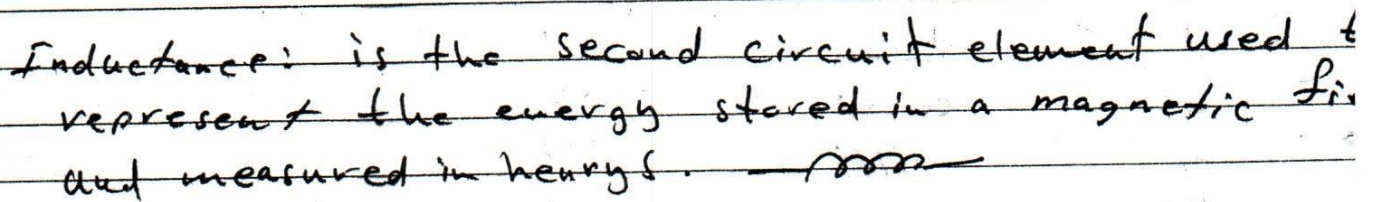 Inductance: is the second circuit element used t
represent the energy stored in a magnetic fi
and measured in henrys.